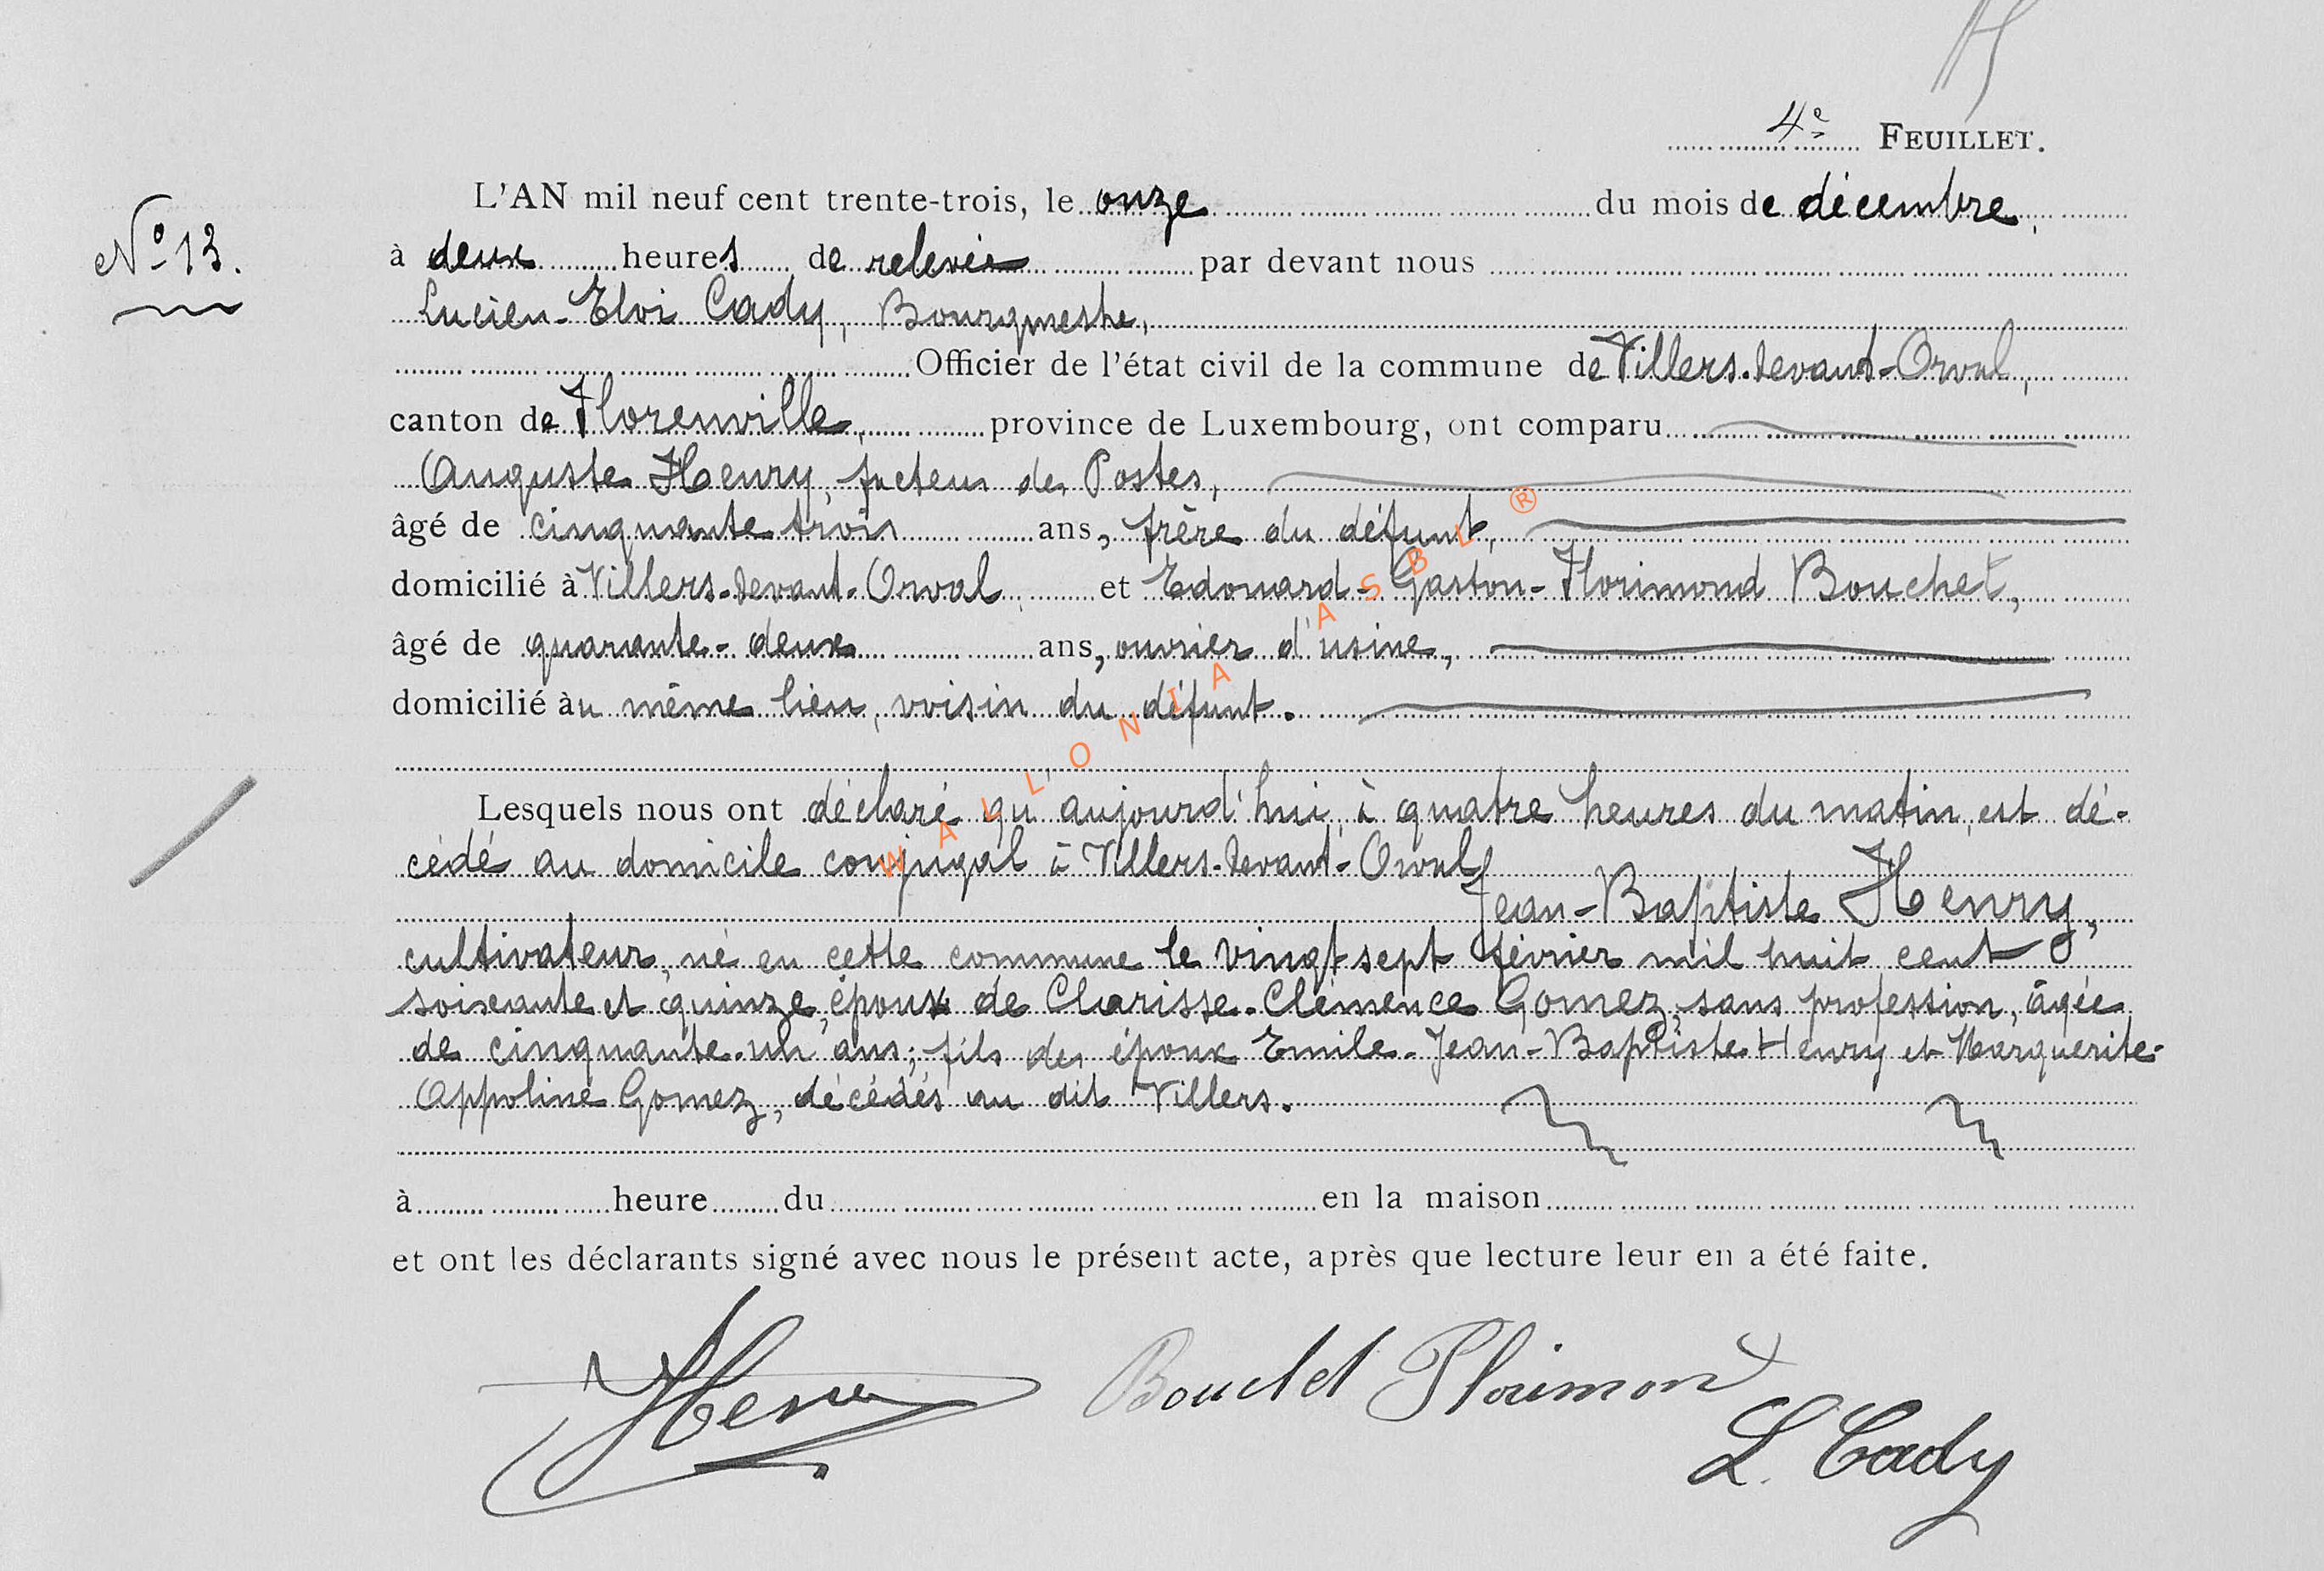 4e FEUILLET.
L'AN mil neuf cent trente-trois, le onze du mois de décembre,
No 13.
à deux heures de relevée par devant nous
Lucien-Eloi Cady, Bourgmestre,
Officier de l'état civil de la commune de Villers-devant-Orval,
canton de Florenville, province de Luxembourg, ont comparu
Auguste Henry, facteur des Postes,
âgé de cinquante trois ans, frère du défunt,
domicilié à Villers-devant-Orval, et Edouard-Gaston-Florimond Bouchet,
âgé de quarante-deux ans, ouvrier d'usine,
domicilié au même lieu, voisin du défunt.
Lesquels nous ont déclaré qu'aujourd'hui, à quatre heures du matin, est dé-
cédé au domicile conjugal à Villers-devant-Orval
Jean-Baptiste Henry,
cultivateur, né en cette commune le vingt sept février mil huit cent
soixante et quinze, époux de Clarisse-Clémence Gomez, sans profession, âgée
de cinquante-un ans; fils des époux Emile-Jean-Baptiste Henry et Marguerite-
Appoline Gomez, décédés au dit Villers.
à heure du en la maison
et ont les déclarants signé avec nous le présent acte, après que lecture leur en a été faite.
Bouchet Florimond
L. Cady
WALLONIA ASBL ®